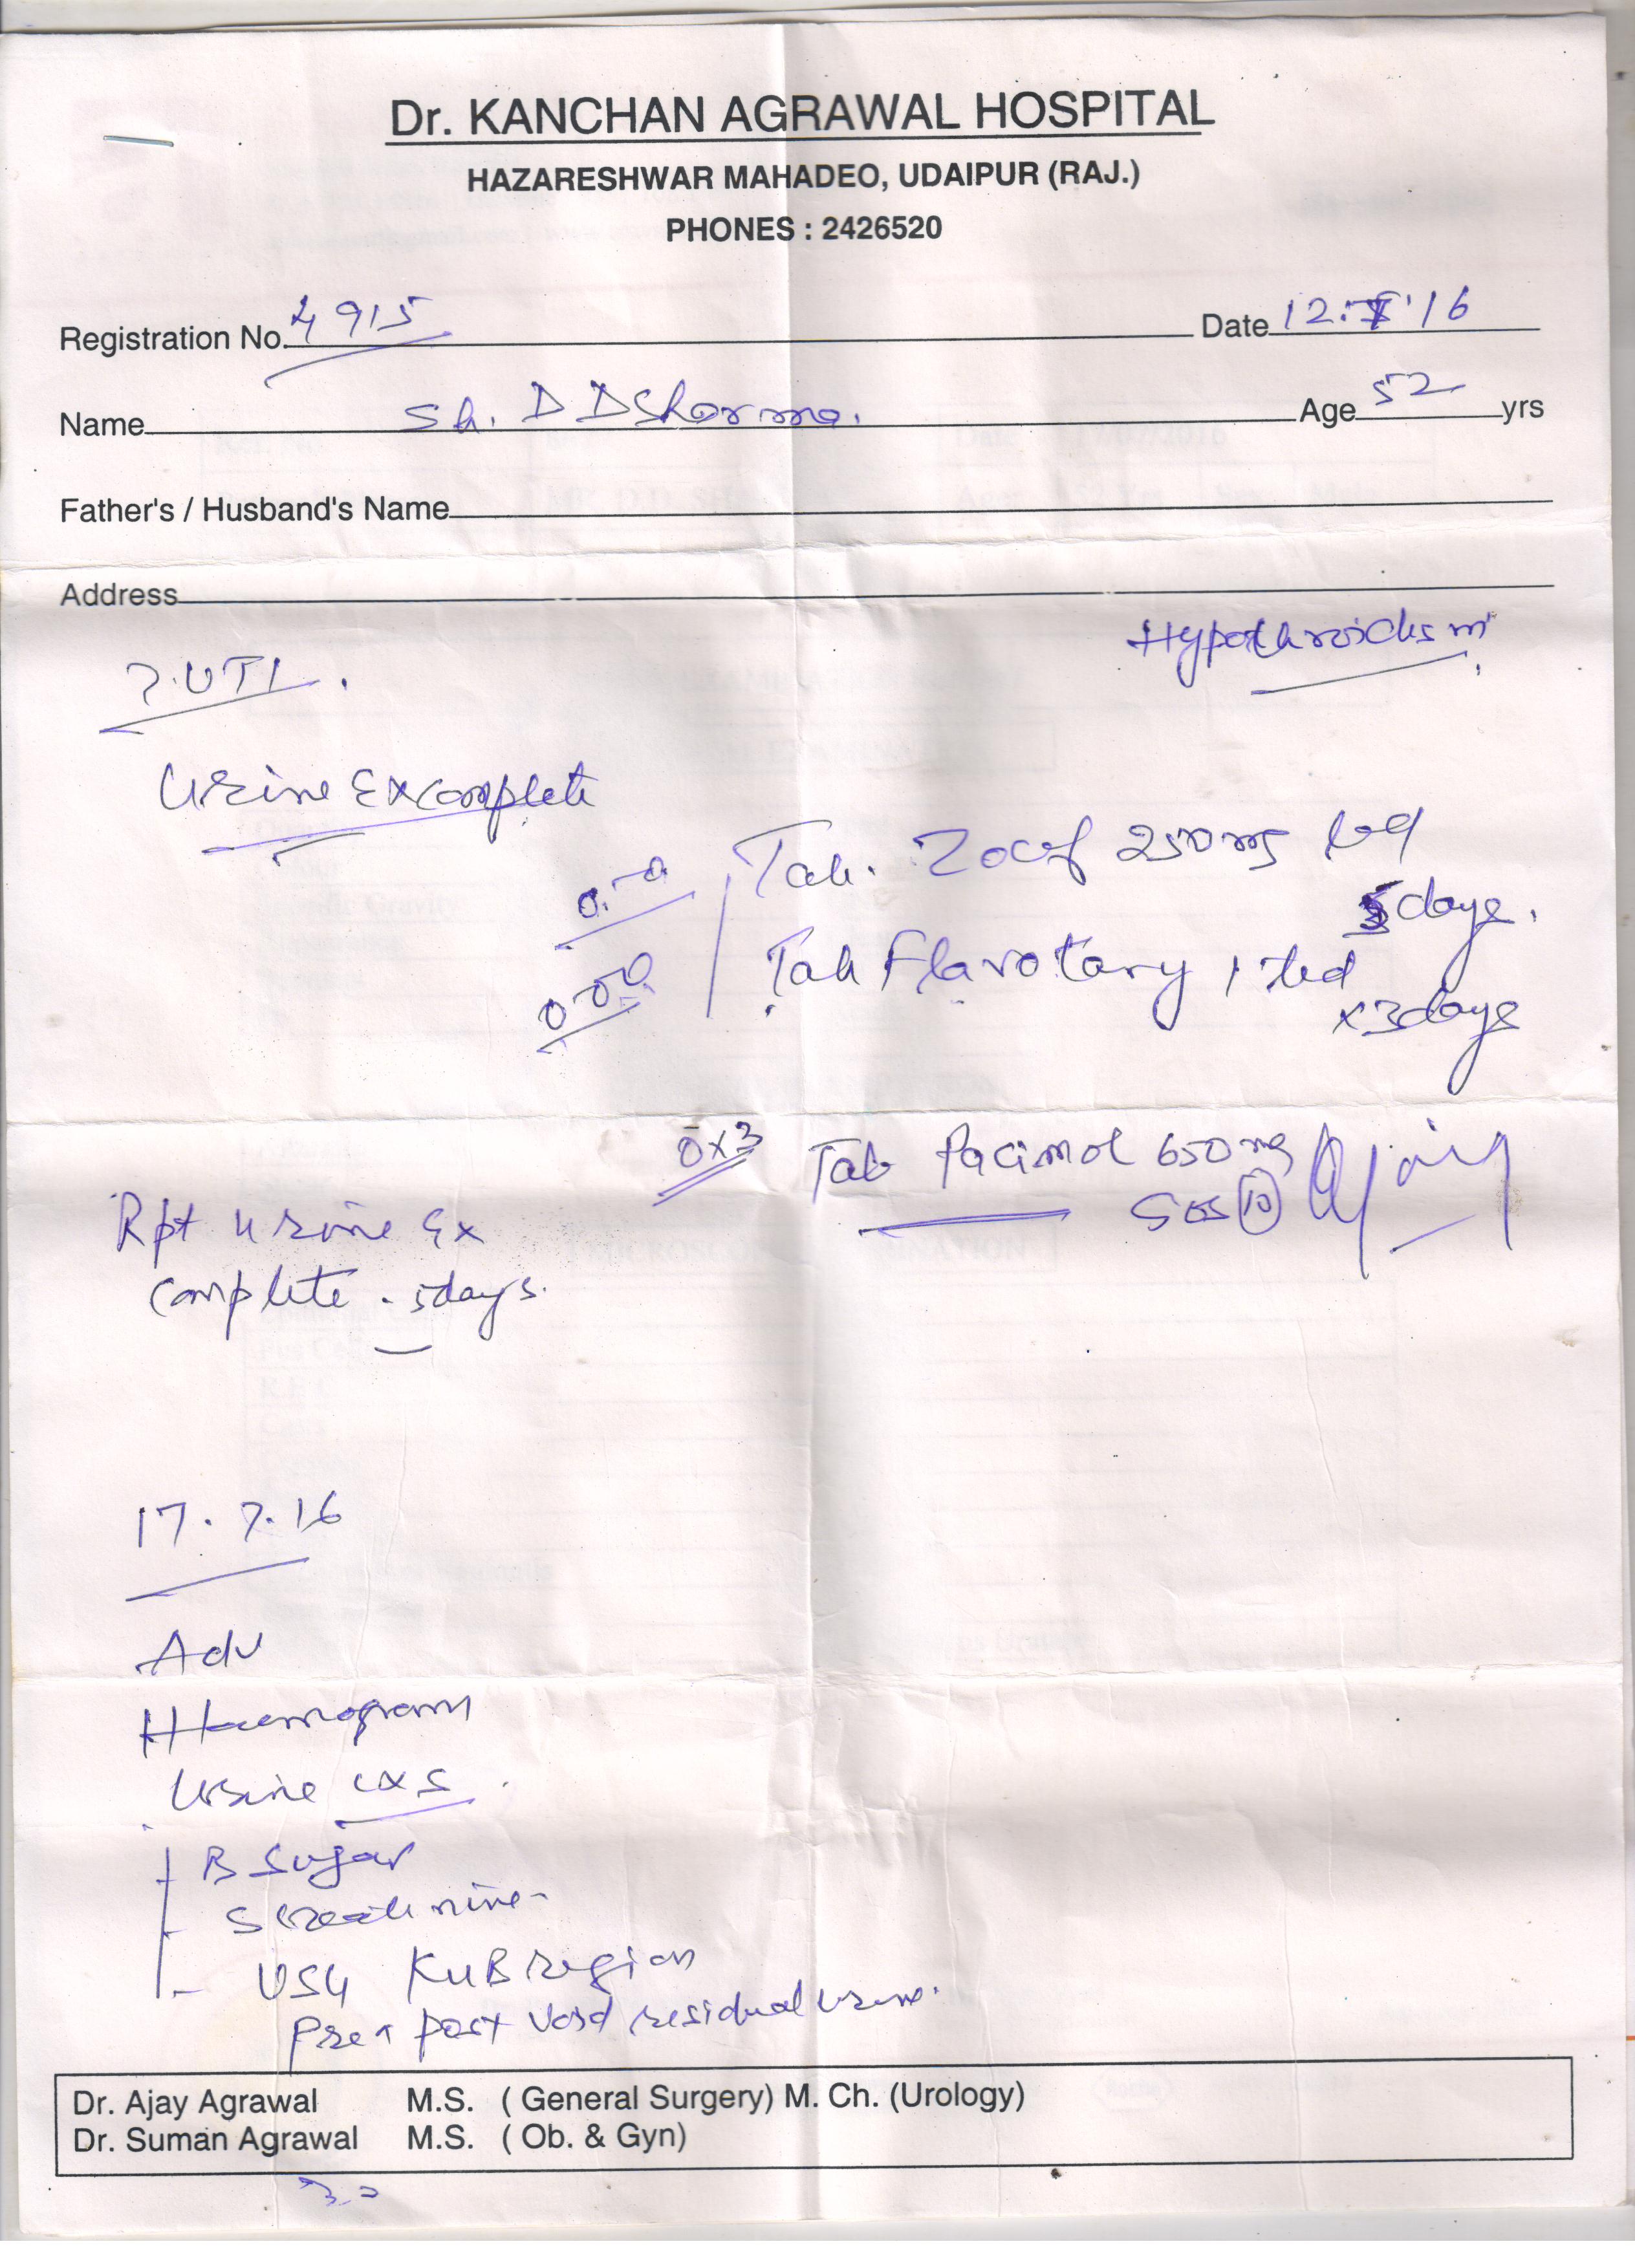 Dr. KANCHAN AGRAWAL HOSPITAL
HAZARESHWAR MAHADEO, UDAIPUR (RAJ.)
PHONES : 2426520
Registration No. 4915 Date 12. '16
Name Sh. D D Sharma. Age 52 yrs
Father's / Husband's Name
Address
Hypothroidism
?.UTI.
Urine Ex complete
Tab. Zocef 250mg
5 days.
Tab Flavotary 1 tid
x3days
0x3 Tab Pacimol 650mg
SOS 10
Rpt urine Ex
complete . 5days.
17.7.16
Adv
Haemogram
Urine C x S
B Sugar
S Creatinine
USG KUB region
Pre + post void residual urine.
Dr. Ajay Agrawal M.S. ( General Surgery) M. Ch. (Urology)
Dr. Suman Agrawal M.S. ( Ob. & Gyn)